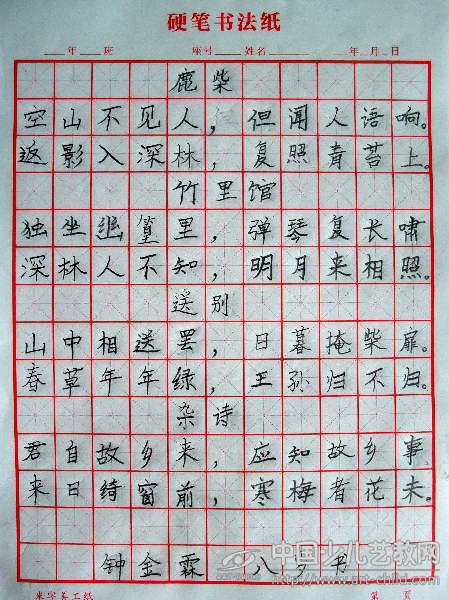 硬笔书法纸
年 班 座号 姓名 年 月 日
鹿柴
空山不见人，但闻人语响。
返影入深林，复照青苔上。
竹里馆
独坐幽篁里，弹琴复长啸
深林人不知，明月来相照。
送别
山中相送罢，日暮掩柴扉。
春草年年绿，王孙归不归。
杂诗
君自故乡来，应知故乡事
来日绮窗前，寒梅者花未。
钟金霖 八岁书
中国少儿艺教网
http://www.art-child.com
第 页